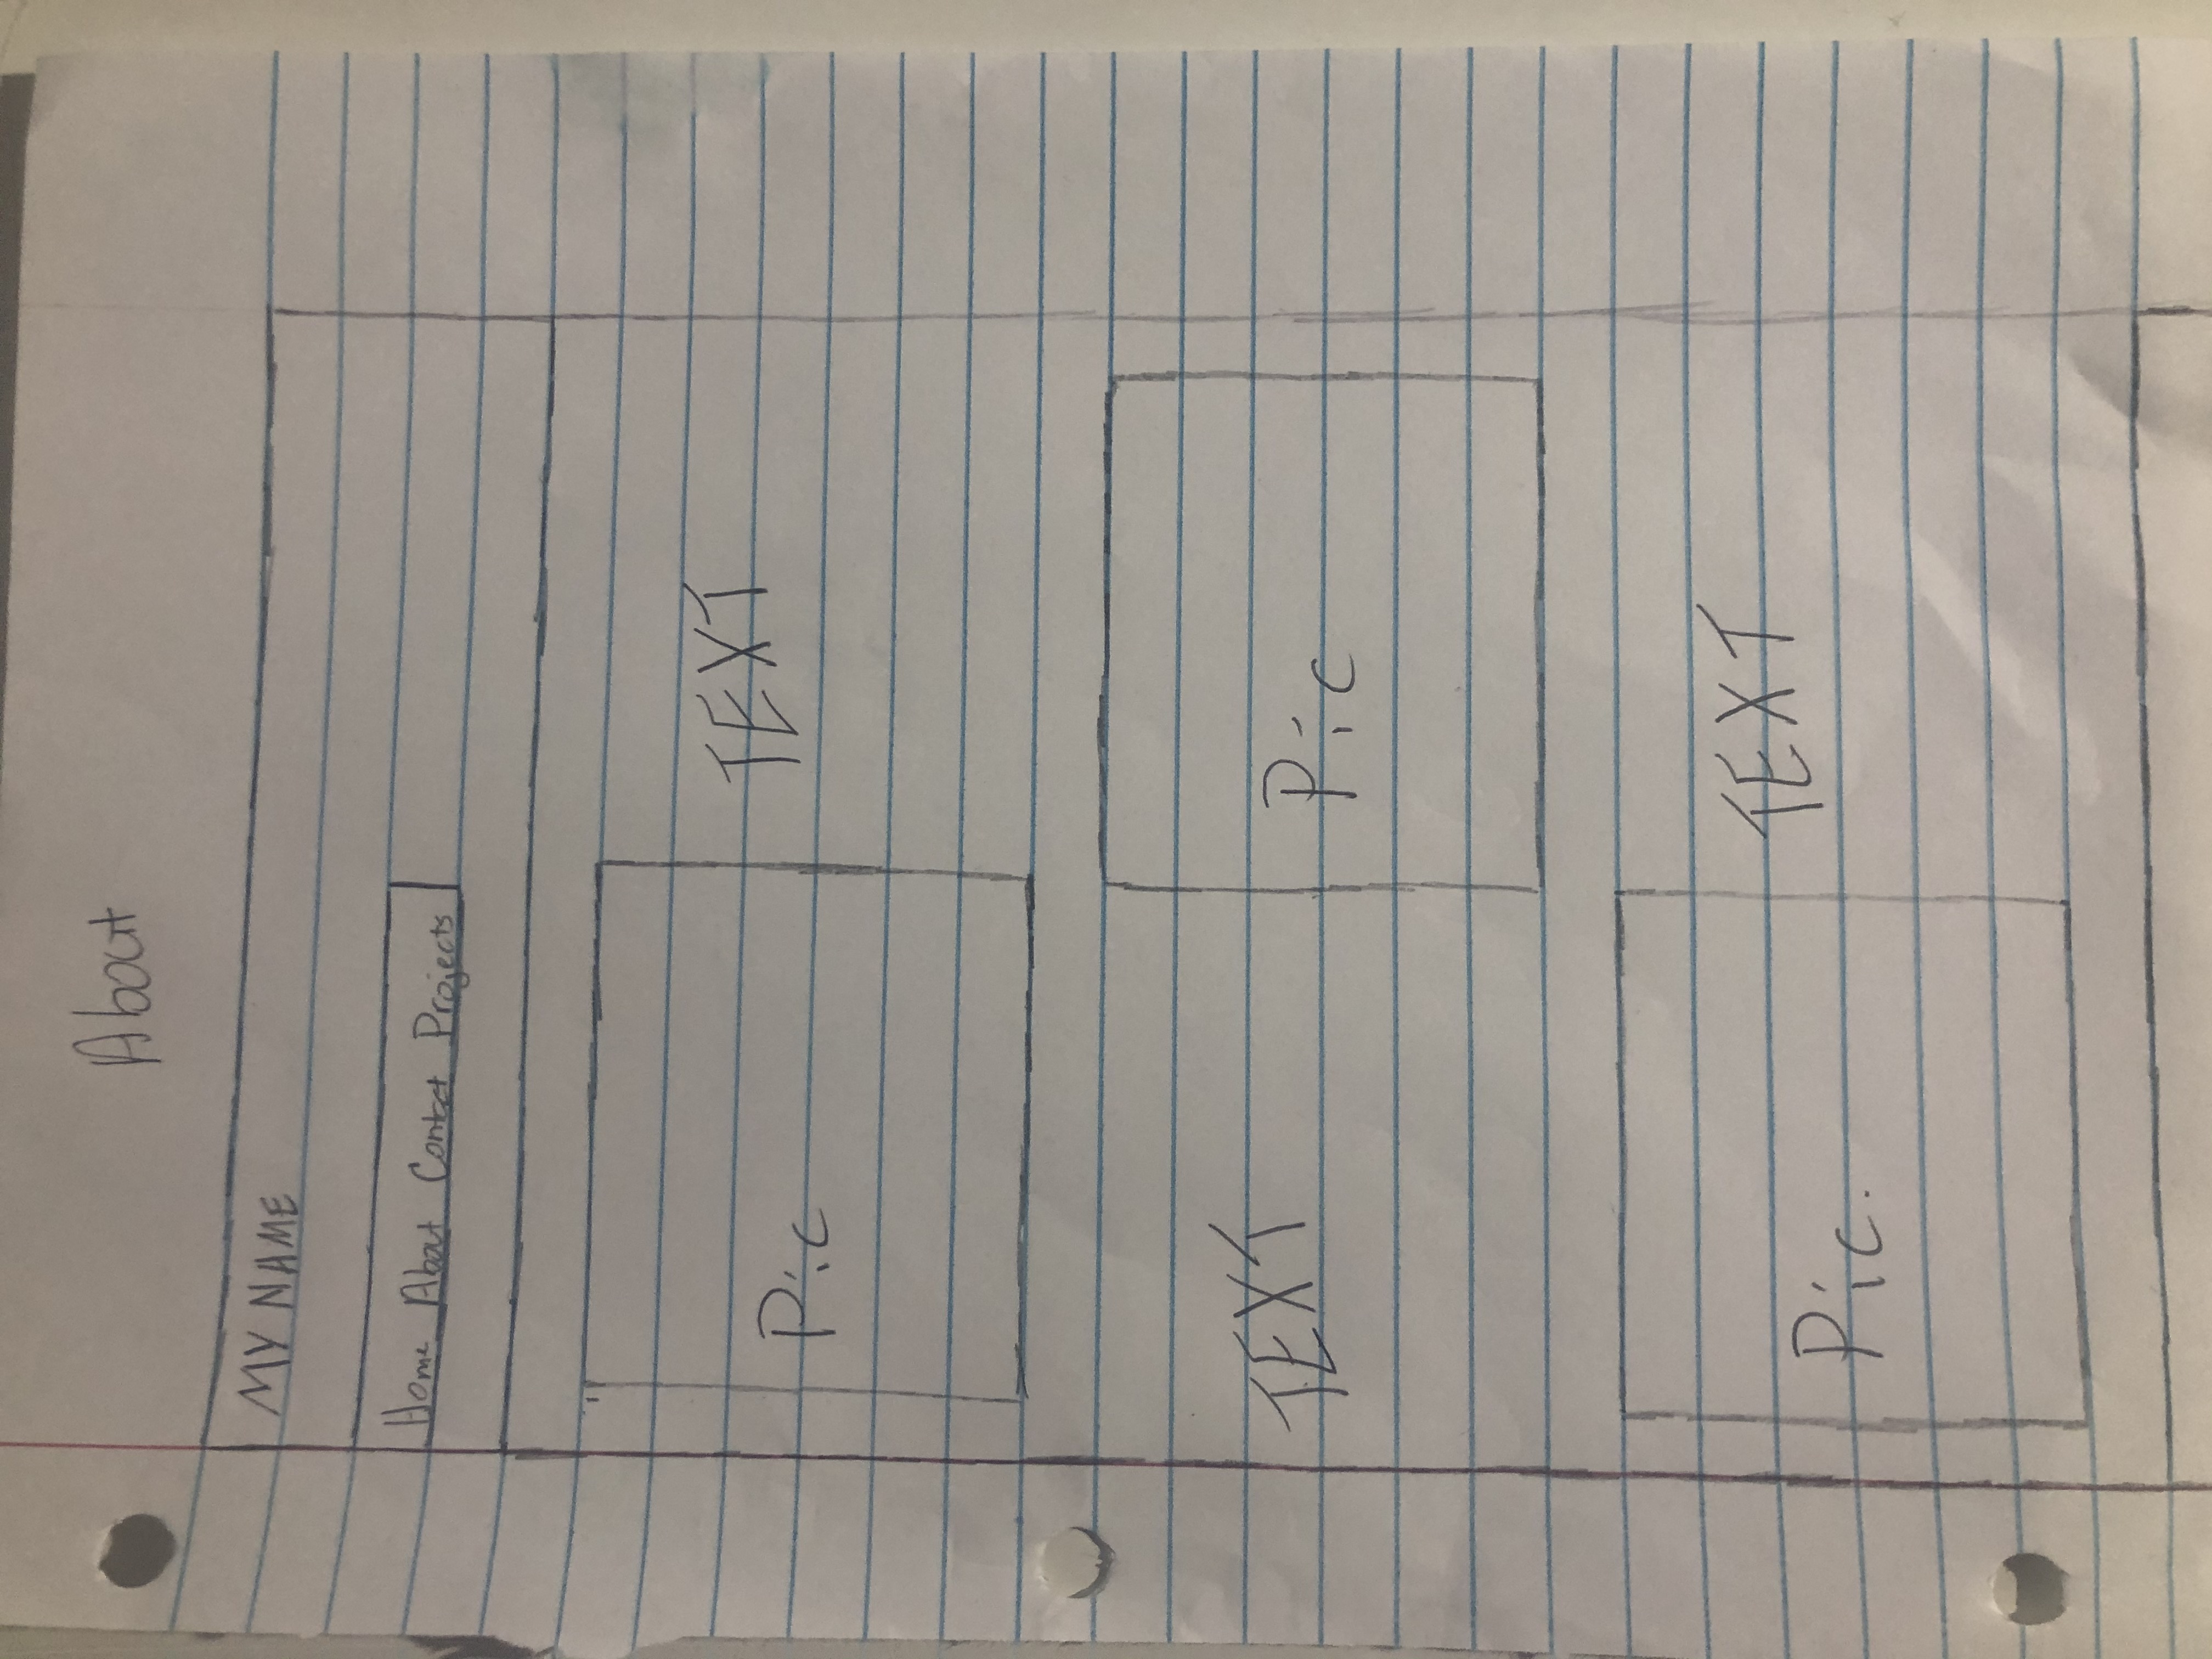 About
MY NAME
Home About Contact Projects
Pic
TEXT
TEXT
Pic
Pic.
TEXT